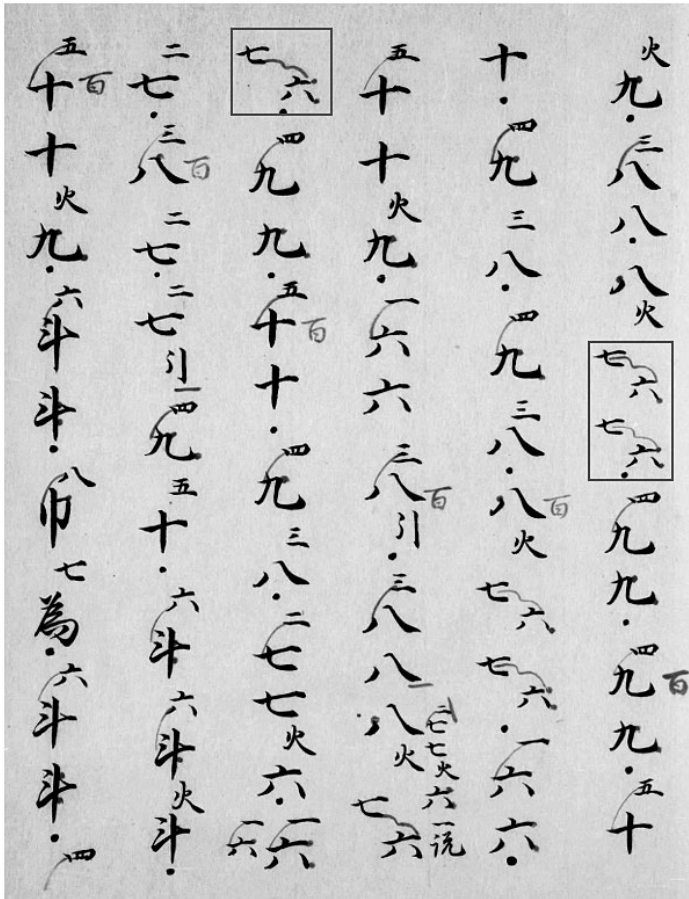 火九・三八八・八火七六七六・四九九・四九百九・五十
十・四九三八・四九三八・八百火七六七六・一六六・
五十十火九・一六六三八百引・三八八一八火七六
二七七火六一説
七六・四九九・五十百十・四九三八・二七七火六・一六
一六
二七・三八百二七・二七引一四九五十・六斗六斗火斗・
五十百十火九・六斗斗・八巾七為・六斗斗・四